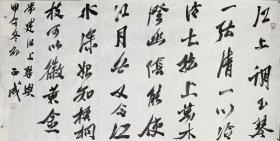 江上調玉琴
一弦清一心泠
泠七弦萬木
澄幽陰能使
江月白又令江
水深始知梧桐
枝可以徽黄金
常建江上琴興
甲午冬初正成